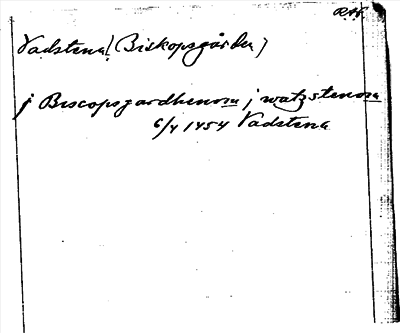 RAP.
Vadstena (Biskopsgården)
j Biscopsgardhenom j watzstenom
6/4 1454 Vadstena